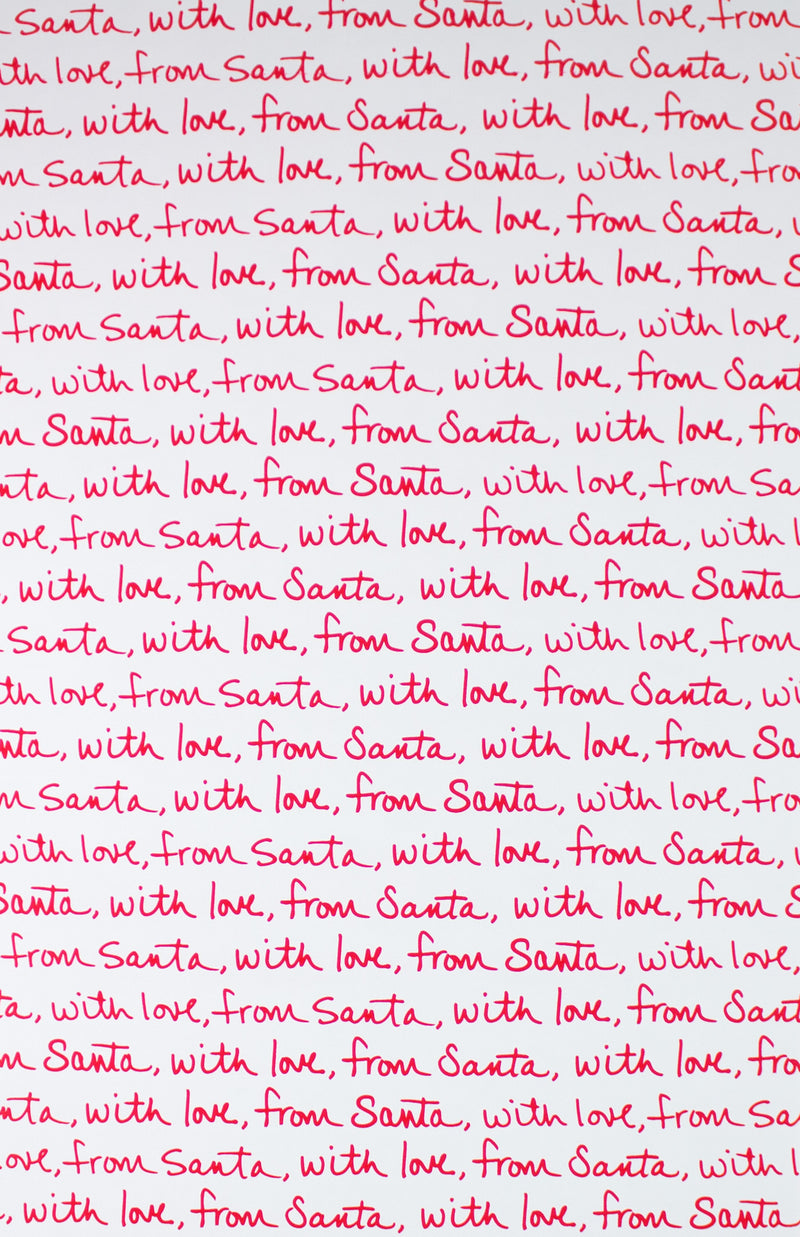 Santa, with love, from Santa, with love, from
ith love, from Santa, with love, from Santa, wi
nta, with love, from Santa, with love, from Sa
m Santa, with love, from Santa, with love, fro
with love, from Santa, with love, from Santa,
Santa, with love, from Santa, with love, from S
from Santa, with love, from Santa, with love,
ta, with love, from Santa, with love, from Sant
m Santa, with love, from Santa, with love, fro
nta, with love, from Santa, with love, from Sa
ove, from Santa, with love, from Santa, with l
, with love, from Santa, with love, from Santa
Santa, with love, from Santa, with love, from
th love, from Santa, with love, from Santa, wi
nta, with love, from Santa, with love, from Sa
m Santa, with love, from Santa, with love, fro
with love, from Santa, with love, from Santa,
Santa, with love, from Santa, with love, from S
from Santa, with love, from Santa, with love,
ta, with love, from Santa, with love, from Sant
m Santa, with love, from Santa, with love, fro
nta, with love, from Santa, with love, from Sa
ove, from Santa, with love, from Santa, with l
, with love, from Santa, with love, from Santa